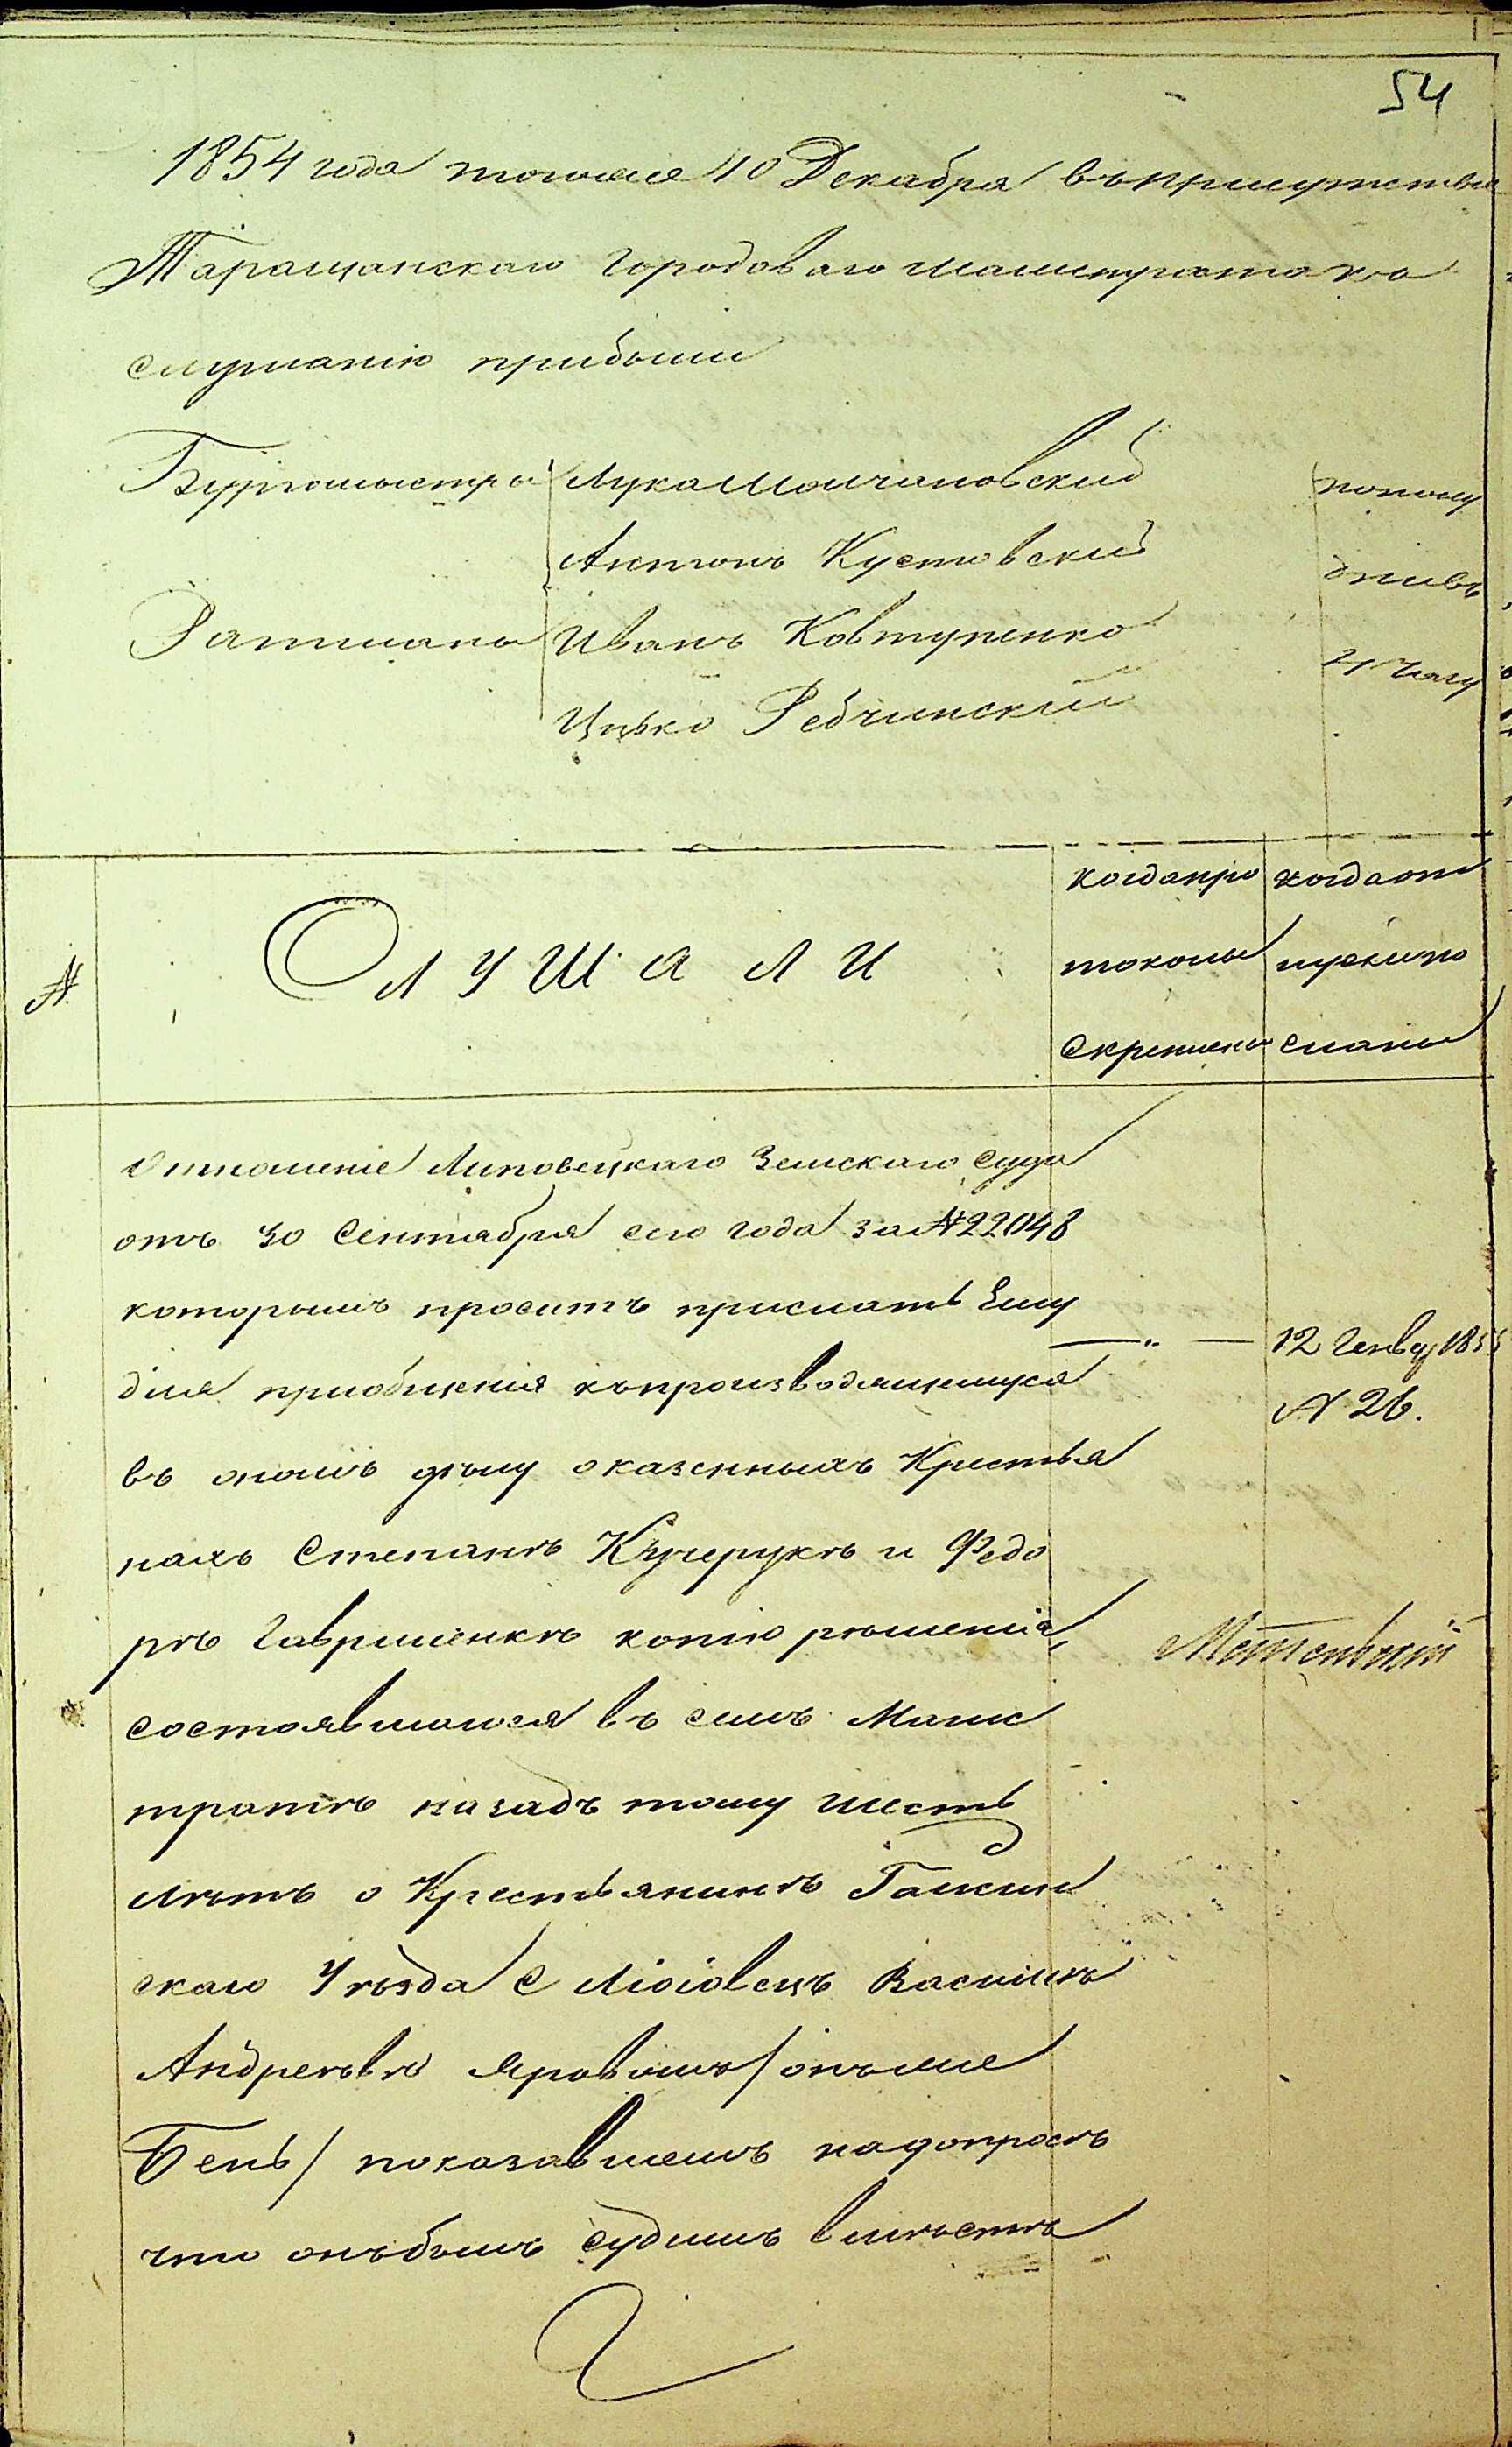 54
1854 года тогоже 10 Декабря въприсутствіе
Таращанскаго Городоваго Магистрата къ
слушанію прибыли
Бургомистры Лука Молчановскій
пополу
Антонъ Кустовскій
дни въ
Ратманы Иванъ Ковтуненко
4 часу
Ицько Ребчинскій
№
СЛУШАЛИ
когдапро
токолы
скреплены
когдаот
пускипо
сланы
Отношеніе Липовецкаго Земскаго суда
отъ 30 Сентября сего года за №22048
которымъ проситъ прислать Ему
для пріобщенія къпроизводящемуся
въ ономъ делу оказенныхъ Крестья
нахъ Степанѣ Кучерукѣ и Федо
рѣ Гавриленкѣ копію рѣшенія,
состоявшагося въ семъ Магис
тратѣ назадъ тому шесть
лѣтъ о Крестьянинѣ Гайсин
скаго Уѣзда С Василіѣ
Андреевѣ Яровомъ / онъже
Бень / показавшемъ надопросѣ
что онъбылъ судимъ вмѣстѣ
12 Генвар 1855
№ 26.